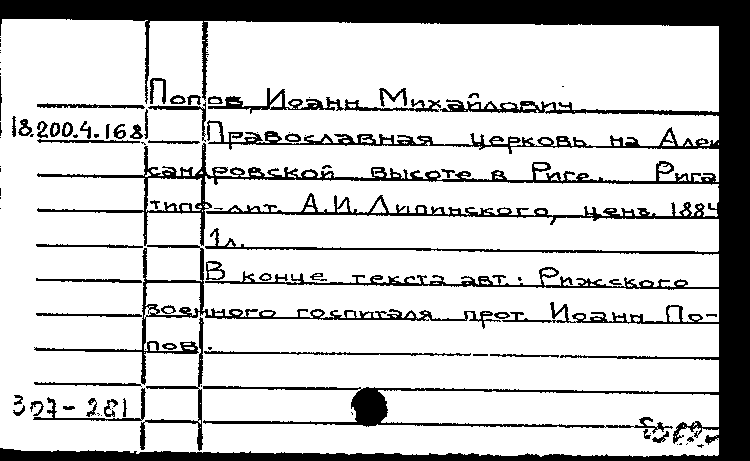 Попов, Иоанн Михайлович
18.200.4.168 Православная церковь на Алек
сандровской высоте в Риге. Рига,
типо-лит. А.И. Липинского, ценз. 1884
1л.
В конце текста авт.: Рижского
военного госпиталя прот. Иоанн По-
пов.
307-281